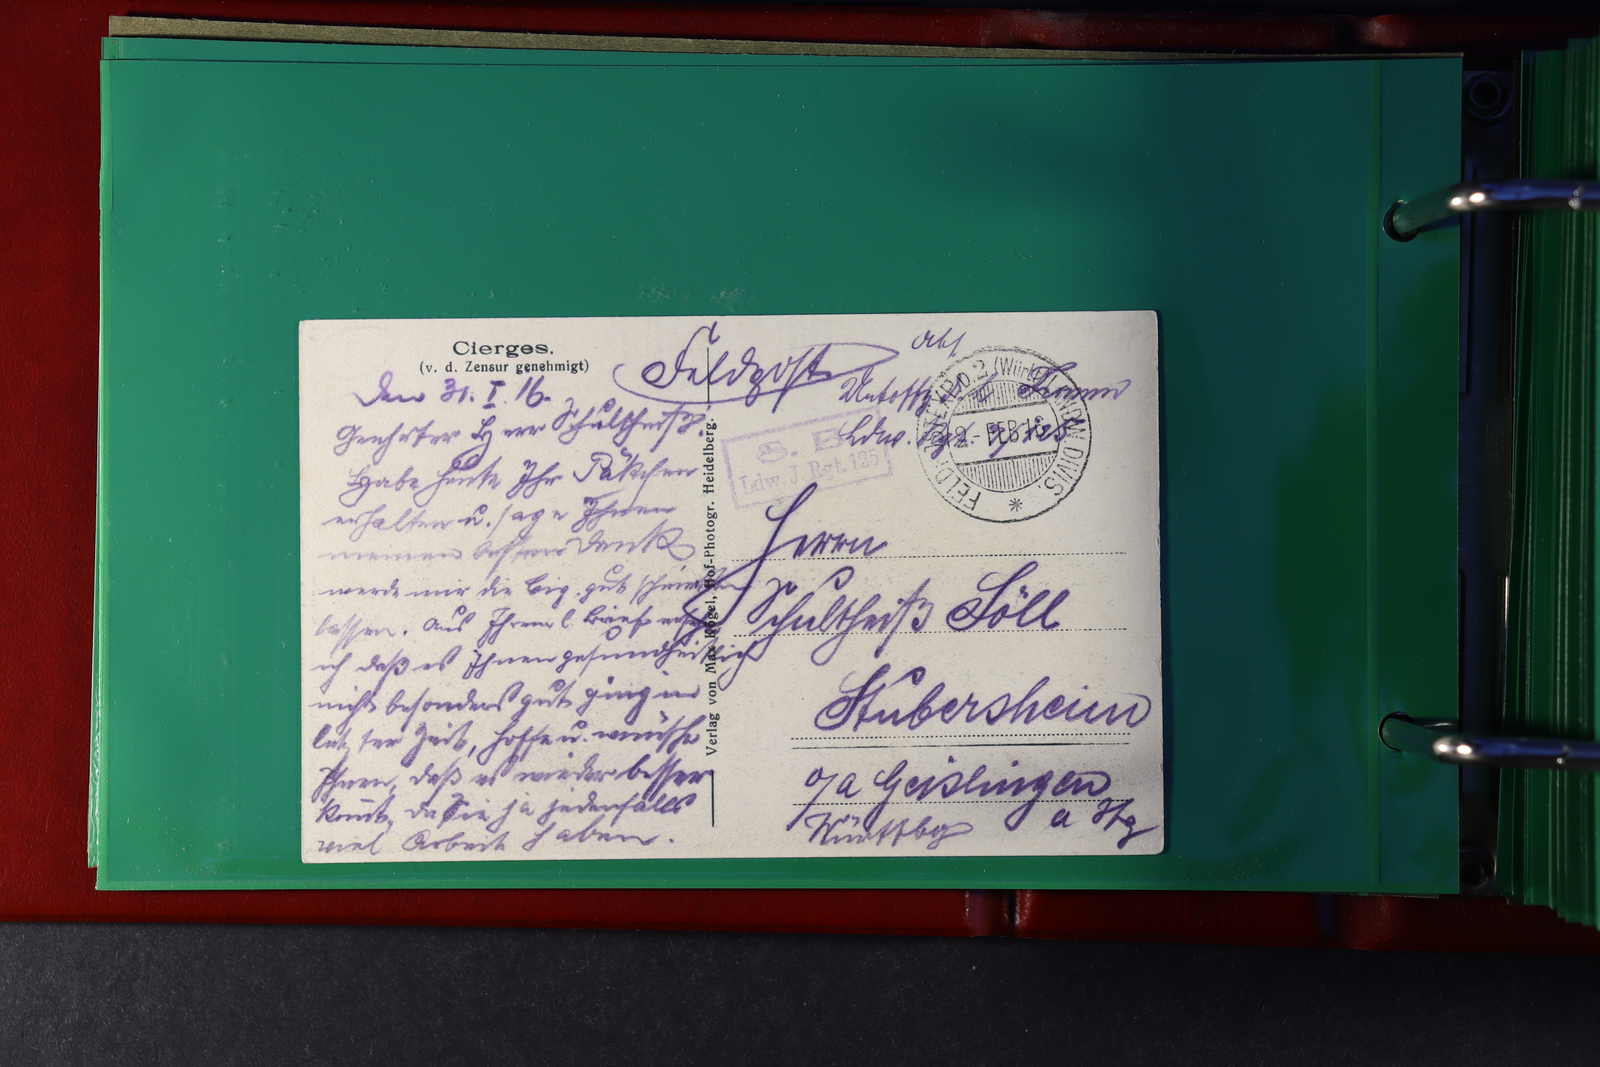 Cierges.
(v. d. Zensur genehmigt)
Feldpost
Abs.
Untoffz.
Ldw. 125
FELDPOSTEXPED. 2. (Württ.) LANDW. DIVIS.
2.- FEB 16
S. B.
Ldw. J. Rgt. 125
Den 31. I. 16.
Geehrter Herr Schultheiß!
Habe heute Ihr Päkchen
erhalten u. sage Ihnen
meinen besten Dank
werde mir die Zig. gut schmecken
lassen. Aus Ihrem l. Briefe ersehe
ich daß es Ihnen gesundheitlich
nicht besonders gut ging in
letzter Zeit, hoffe u. wünsche
Ihnen, daß es wieder besser
kommt, da Sie ja jedenfalls
viel Arbeit haben.
Verlag von Max Kögel, Hof-Photogr. Heidelberg.
Herrn
Schultheiß Söll
Stubersheim
o/a Geislingen
a Stg
Württbg